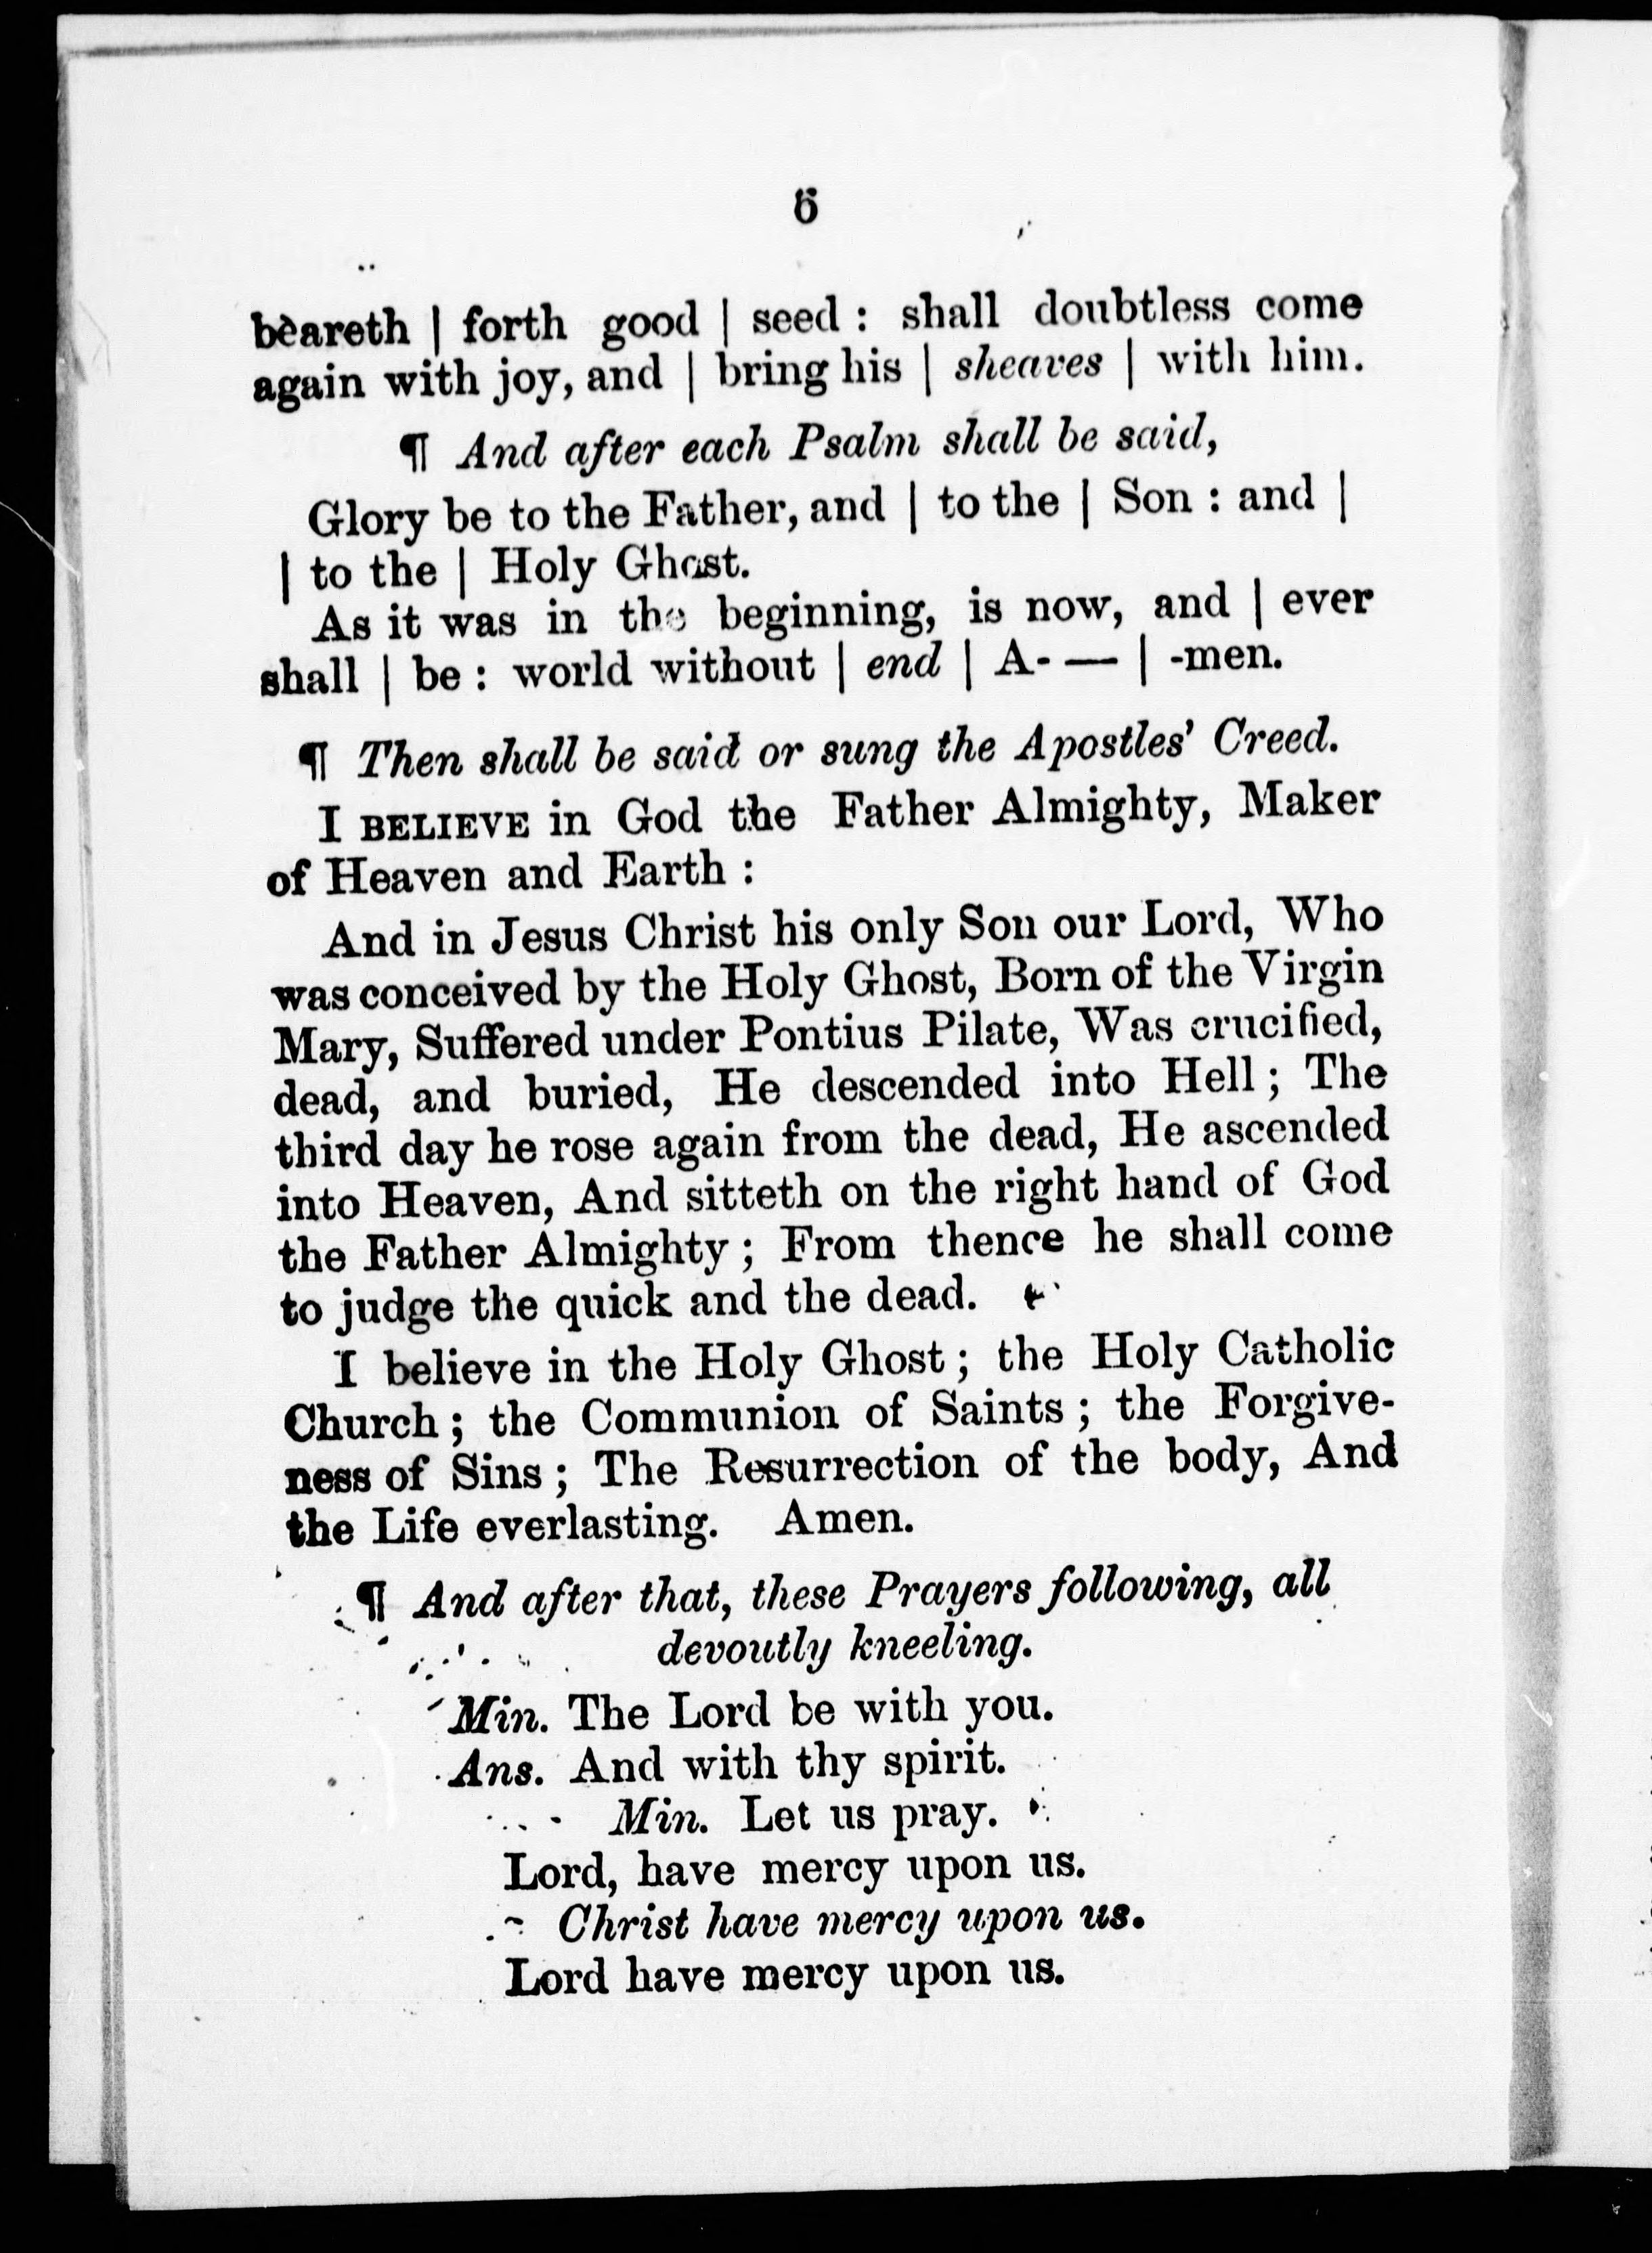 6
beareth | forth good | seed : shall doubtless come
again with joy, and | bring his | sheaves | with him.
¶ And after each Psalm shall be said,
Glory be to the Father, and | to the | Son : and |
| to the | Holy Ghost.
As it was in the beginning, is now, and | ever
shall | be : world without | end | A- — | -men.
¶ Then shall be said or sung the Apostles' Creed.
I BELIEVE in God the Father Almighty, Maker
of Heaven and Earth :
And in Jesus Christ his only Son our Lord, Who
was conceived by the Holy Ghost, Born of the Virgin
Mary, Suffered under Pontius Pilate, Was crucified,
dead, and buried, He descended into Hell ; The
third day he rose again from the dead, He ascended
into Heaven, And sitteth on the right hand of God
the Father Almighty ; From thence he shall come
to judge the quick and the dead.
I believe in the Holy Ghost ; the Holy Catholic
Church ; the Communion of Saints ; the Forgive-
ness of Sins ; The Resurrection of the body, And
the Life everlasting. Amen.
¶ And after that, these Prayers following, all
devoutly kneeling.
Min. The Lord be with you.
Ans. And with thy spirit.
Min. Let us pray.
Lord, have mercy upon us.
Christ have mercy upon us.
Lord have mercy upon us.